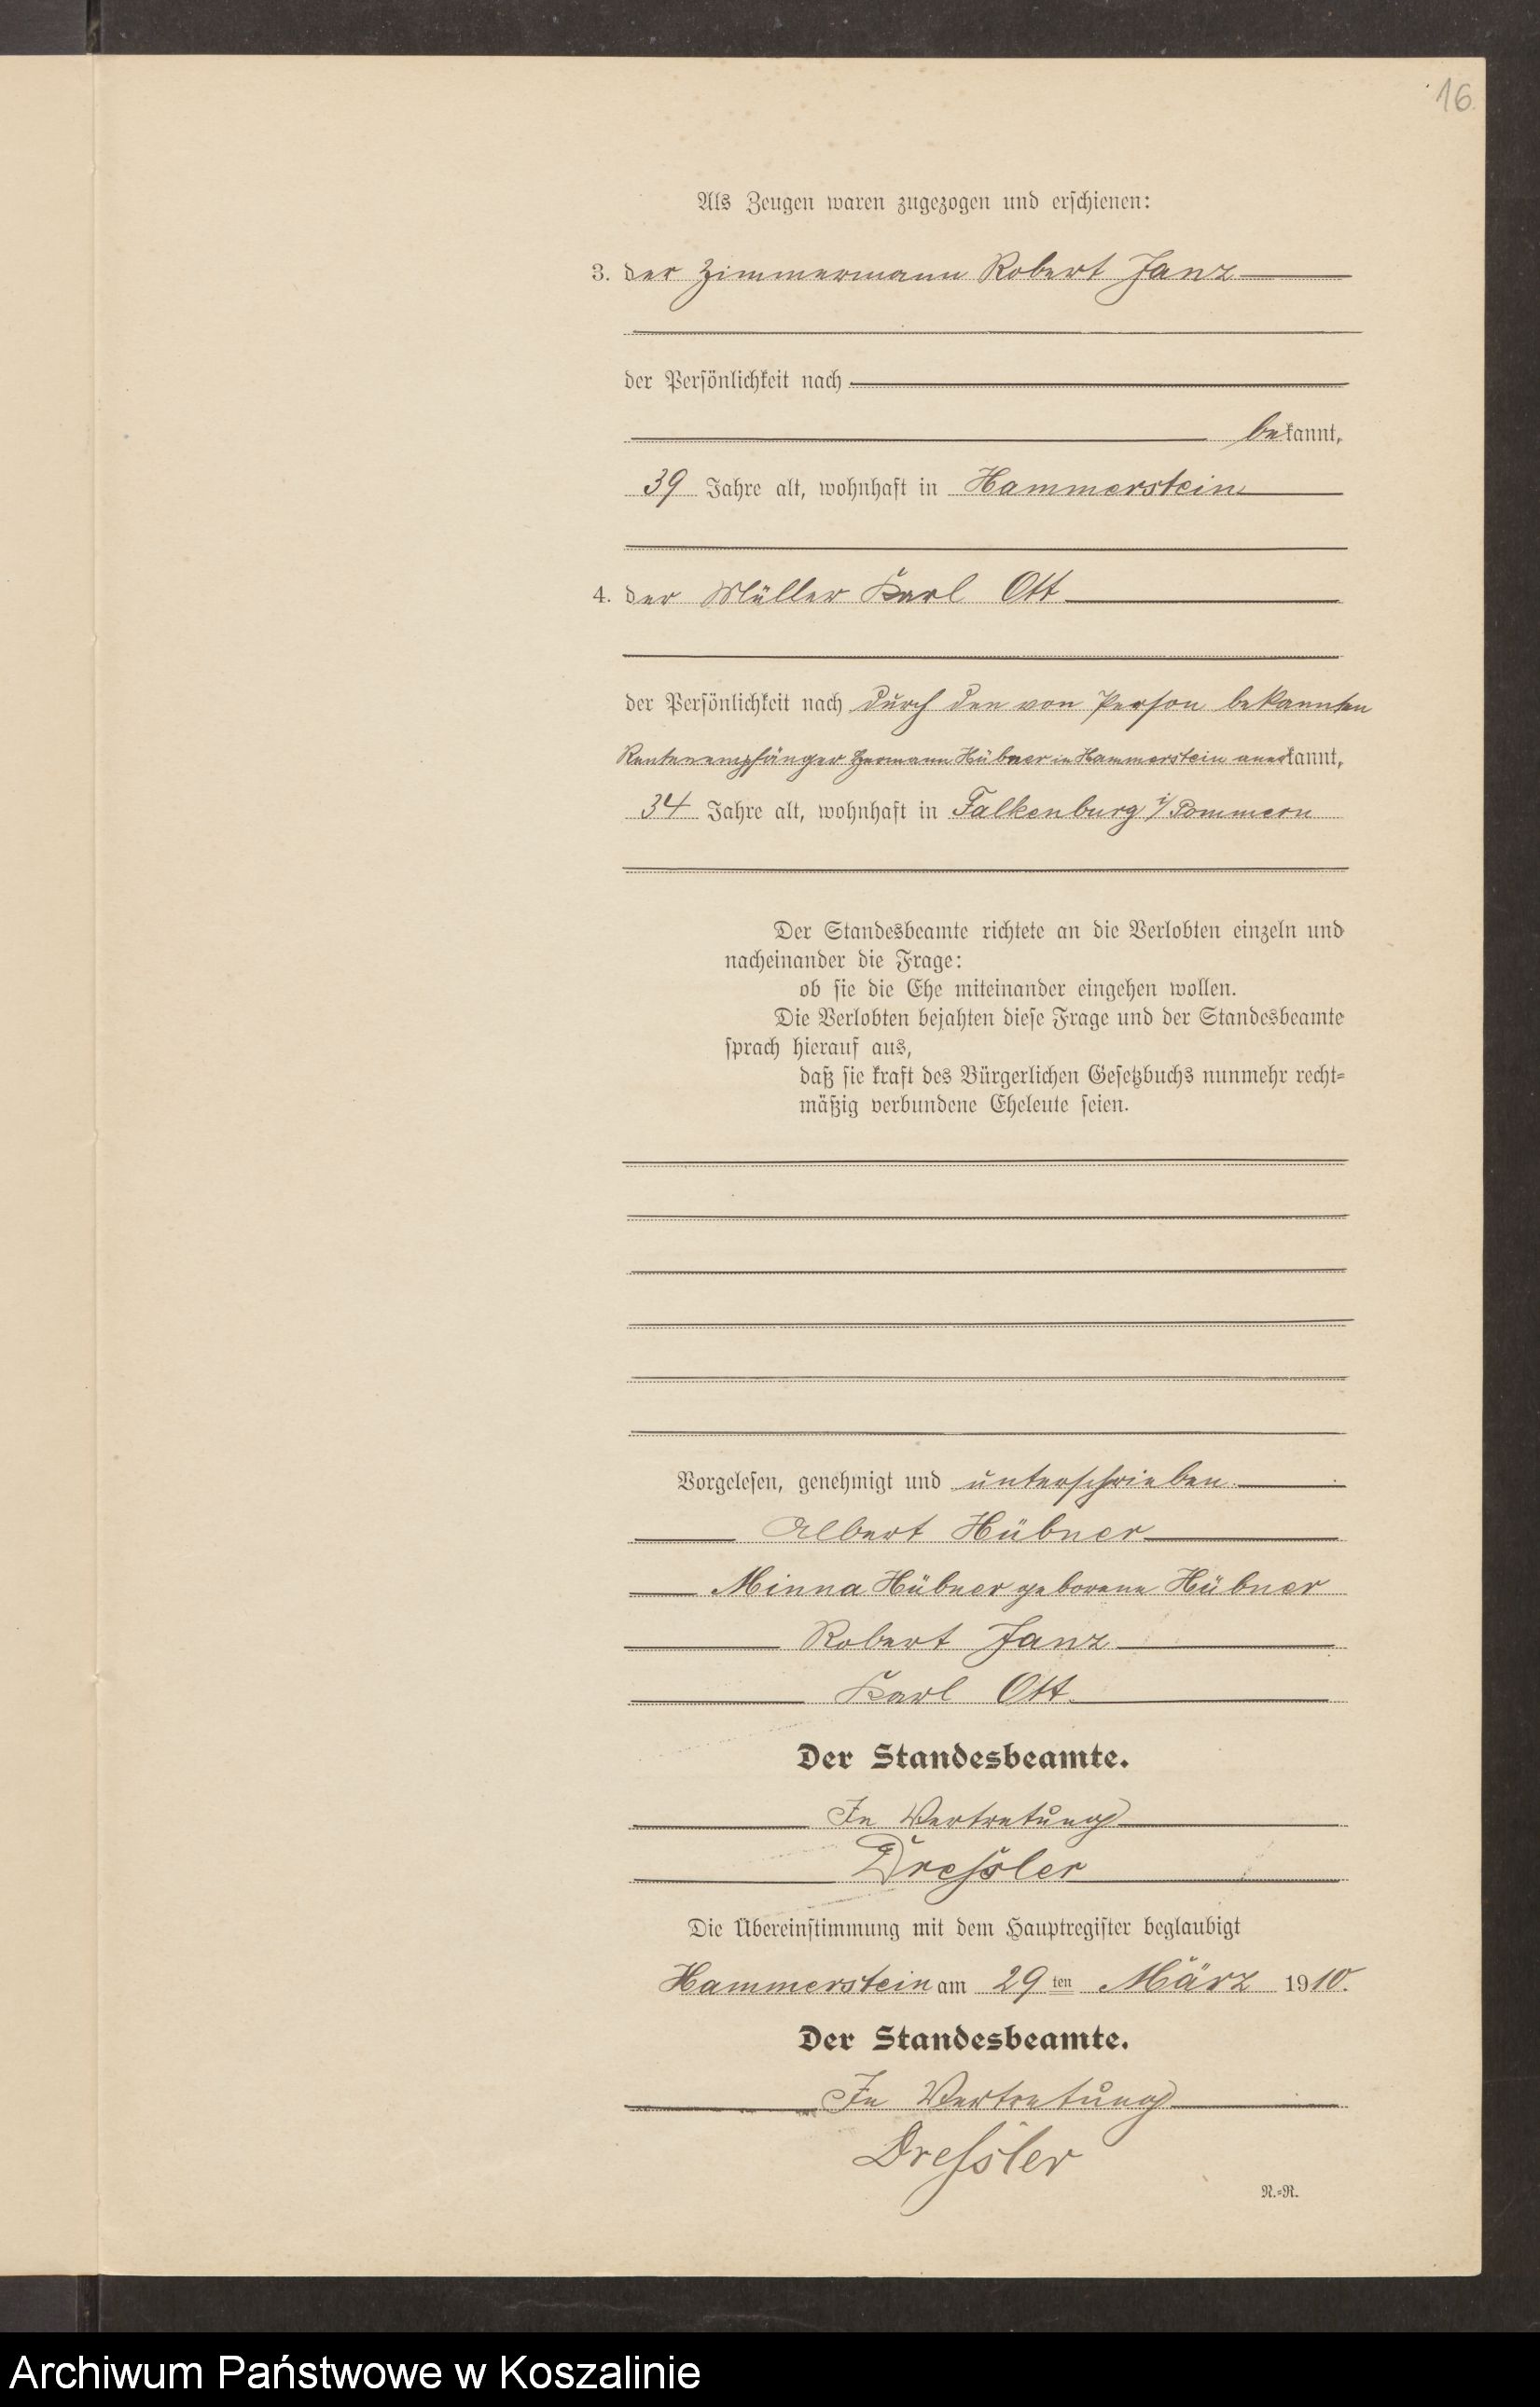 16.
Als Zeugen waren zugezogen und erschienen:
3. der Zimmermann Robert Janz
der Persönlichkeit nach
bekannt,
39 Jahre alt, wohnhaft in Hammerstein
4. der Müller Karl Ott
der Persönlichkeit nach durch den von Person bekannten
Rentenempfänger Hermann Hübner in Hammerstein anerkannt,
34 Jahre alt, wohnhaft in Falkenburg i/Pommern
Der Standesbeamte richtete an die Verlobten einzeln und
nacheinander die Frage:
ob sie die Ehe miteinander eingehen wollen.
Die Verlobten bejahten diese Frage und der Standesbeamte
sprach hierauf aus,
daß sie kraft des Bürgerlichen Gesetzbuchs nunmehr recht-
mäßig verbundene Eheleute seien.
Vorgelesen, genehmigt und unterschrieben.
Albert Hübner
Minna Hübner geborene Hübner
Robert Janz
Karl Ott.
Der Standesbeamte.
In Vertretung
Dressler
Die Übereinstimmung mit dem Hauptregister beglaubigt
Hammerstein am 29 ten März 1910.
Der Standesbeamte.
In Vertretung
Dressler
N.-R.
Archiwum Państwowe w Koszalinie